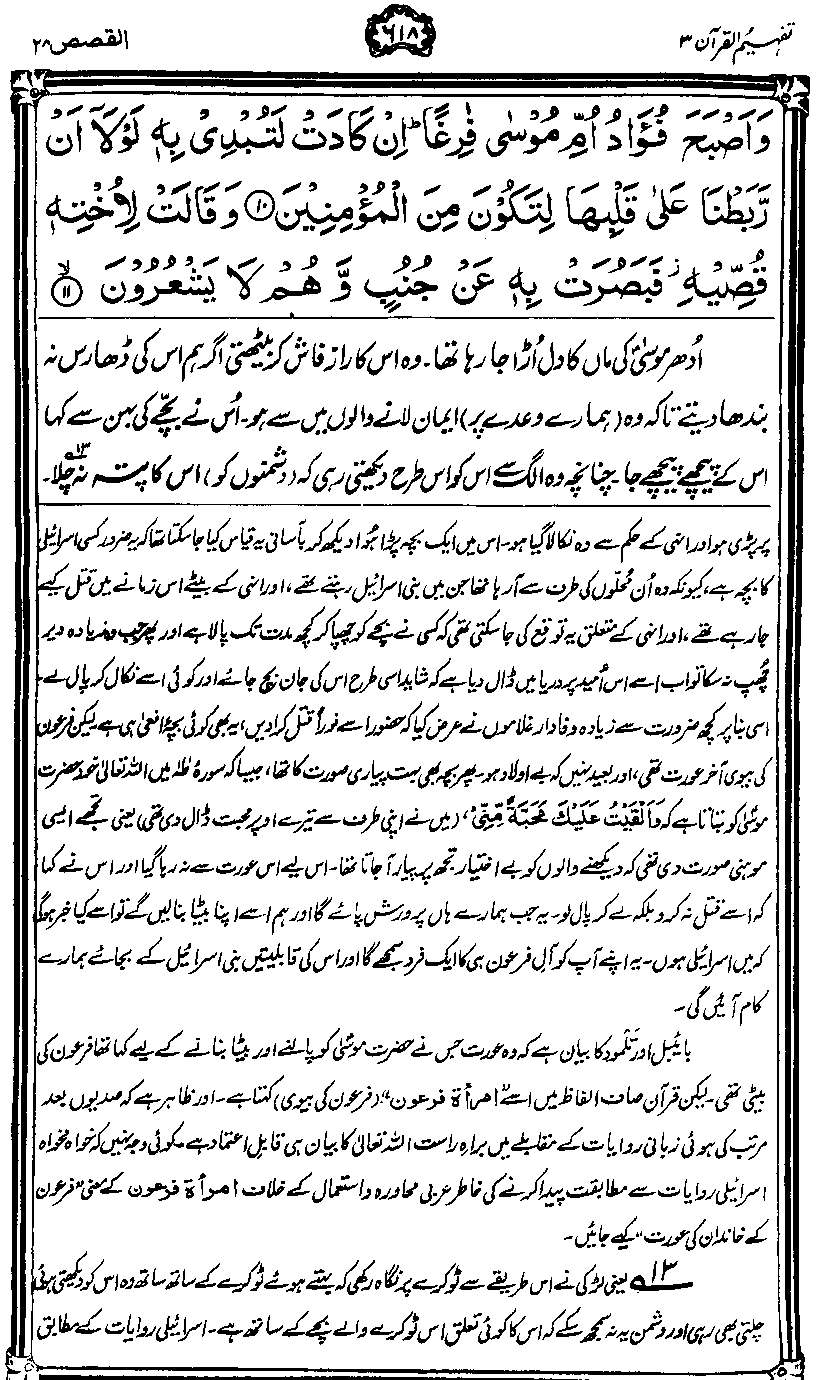 تفہیم القرآن ۳
۶۱۸
القصص ۲۸
وَاَصْبَحَ فُؤَادُ اُمِّ مُوْسٰى فٰرِغًا ؕ اِنْ كَادَتْ لَتُبْدِیْ بِهٖ لَوْلَاۤ اَنْ
رَّبَطْنَا عَلٰى قَلْبِهَا لِتَكُوْنَ مِنَ الْمُؤْمِنِیْنَ ۝۱۰ وَقَالَتْ لِاُخْتِهٖ
قُصِّیْهِ ؗ فَبَصُرَتْ بِهٖ عَنْ جُنُبٍ وَّ هُمْ لَا یَشْعُرُوْنَ ۝۱۱ ۙ
اُدھر موسیٰؑ کی ماں کا دل اُڑا جا رہا تھا۔ وہ اس کا راز فاش کر بیٹھتی اگر ہم اس کی ڈھارس نہ
بندھا دیتے تاکہ وہ (ہمارے وعدے پر) ایمان لانے والوں میں سے ہو۔ اُس نے بچّے کی بہن سے کہا
اس کے پیچھے پیچھے جا۔ چنانچہ وہ الگ سے اس کو اس طرح دیکھتی رہی کہ (دشمنوں کو) اس کا پتہ نہ چلا۔ ۱۳؎
پر پڑی ہو اور انہی کے حکم سے وہ نکالا گیا ہو۔ اس میں ایک بچہ پڑا ہُوا دیکھ کر بآسانی یہ قیاس کیا جا سکتا تھا کہ یہ ضرور کسی اسرائیلی
کا بچہ ہے، کیونکہ وہ اُن مُحلّوں کی طرف سے آ رہا تھا جن میں بنی اسرائیل رہتے تھے، اور انہی کے بیٹے اس زمانے میں قتل کیے
جا رہے تھے، اور انہی کے متعلق یہ توقع کی جا سکتی تھی کہ کسی نے بچے کو چھپا کر کچھ مدت تک پالا ہے اور پھر جب وہ زیادہ دیر
چُھپ نہ سکا تو اب اسے اس اُمید پر دریا میں ڈال دیا ہے کہ شاید اسی طرح اس کی جان بچ جائے اور کوئی اسے نکال کر پال لے۔
اسی بنا پر کچھ ضرورت سے زیادہ وفادار غلاموں نے عرض کیا کہ حضور اسے فوراً قتل کرا دیں، یہ بھی کوئی بچۂ افعی ہی ہے لیکن فرعون
کی بیوی آخر عورت تھی، اور بعید نہیں کہ بے اولاد ہو۔ پھر بچہ بھی بہت پیاری صورت کا تھا، جیسا کہ سورۂ طٰہٰ میں اللہ تعالیٰ خود حضرت
موسیٰؑ کو بتاتا ہے کہ وَاَلْقَیْتُ عَلَیْكَ مَحَبَّةً مِّنِّیْ، (میں نے اپنی طرف سے تیرے اوپر محبت ڈال دی تھی) یعنی تجھے ایسی
موہنی صورت دی تھی کہ دیکھنے والوں کو بے اختیار تجھ پر پیار آ جاتا تھا۔ اس لیے اس عورت سے نہ رہا گیا اور اس نے کہا
کہ اسے قتل نہ کرو بلکہ لے کر پال لو۔ یہ جب ہمارے ہاں پرورش پائے گا اور ہم اسے اپنا بیٹا بنا لیں گے تو اسے کیا خبر ہوگی
کہ میں اسرائیلی ہوں۔ یہ اپنے آپ کو آلِ فرعون ہی کا ایک فرد سمجھے گا اور اس کی قابلیتیں بنی اسرائیل کے بجائے ہمارے
کام آئیں گی۔
بائیبل اور تَلمود کا بیان ہے کہ وہ عورت جس نے حضرت موسیٰؑ کو پالنے اور بیٹا بنانے کے لیے کہا تھا فرعون کی
بیٹی تھی۔ لیکن قرآن صاف الفاظ میں اسے "امرأة فرعون" (فرعون کی بیوی) کہتا ہے۔ اور ظاہر ہے کہ صدیوں بعد
مرتب کی ہوئی زبانی روایات کے مقابلے میں براہِ راست اللہ تعالیٰ کا بیان ہی قابلِ اعتماد ہے۔ کوئی وجہ نہیں کہ خواہ مخواہ
اسرائیلی روایات سے مطابقت پیدا کرنے کی خاطر عربی محاورہ و استعمال کے خلاف امرأة فرعون کے معنی "فرعون
کے خاندان کی عورت" کیے جائیں۔
۱۳؎ یعنی لڑکی نے اس طریقے سے ٹوکرے پر نگاہ رکھی کہ بہتے ہوئے ٹوکرے کے ساتھ ساتھ وہ اس کو دیکھتی ہوئی
چلتی بھی رہی اور دشمن یہ نہ سمجھ سکے کہ اس کا کوئی تعلق اس ٹوکرے والے بچے کے ساتھ ہے۔ اسرائیلی روایات کے مطابق